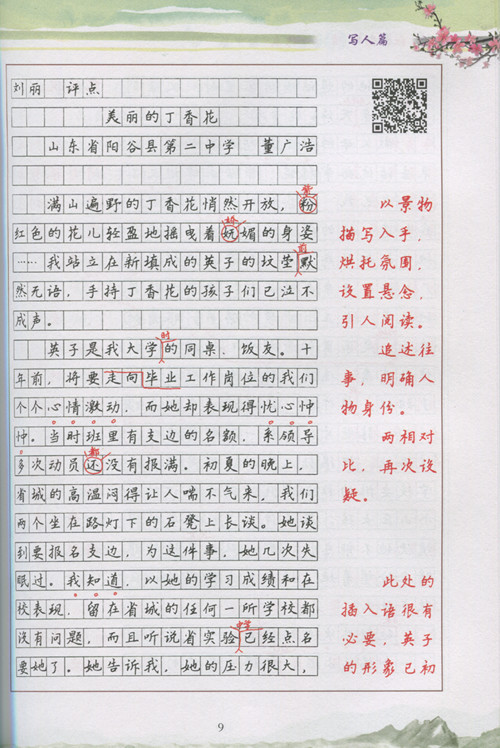 写人篇
刘丽 评点
美丽的丁香花
山东省阳谷县第二中学 董广浩
满山遍野的丁香花悄然开放,粉
红色的花儿轻盈地摇曳着妩媚的身姿
……我站立在新填成的英子的坟茔默
前
然无语,手持丁香花的孩子们已泣不
成声。
时
英子是我大学的同桌、饭友。十
年前,将要走向毕业工作岗位的我们
个个心情激动,而她却表现得忧心忡
忡。当时班里有支边的名额,系领导
都
多次动员还没有报满。初夏的晚上,
省城的高温闷得让人喘不气来,我们
两个坐在路灯下的石凳上长谈。她谈
到要报名支边,为这件事,她几次失
眠过。我知道,以她的学习成绩和在
校表现,留在省城的任何一所学校都
没有问题,而且听说省实验已经点名
中学
要她了。她告诉我,她的压力很大,
以景物
描写入手,
烘托氛围,
设置悬念,
引人阅读。
追述往
事,明确人
物身份。
两相对
比,再次设
疑。
此处的
插入语很有
必要,英子
的形象已初
9